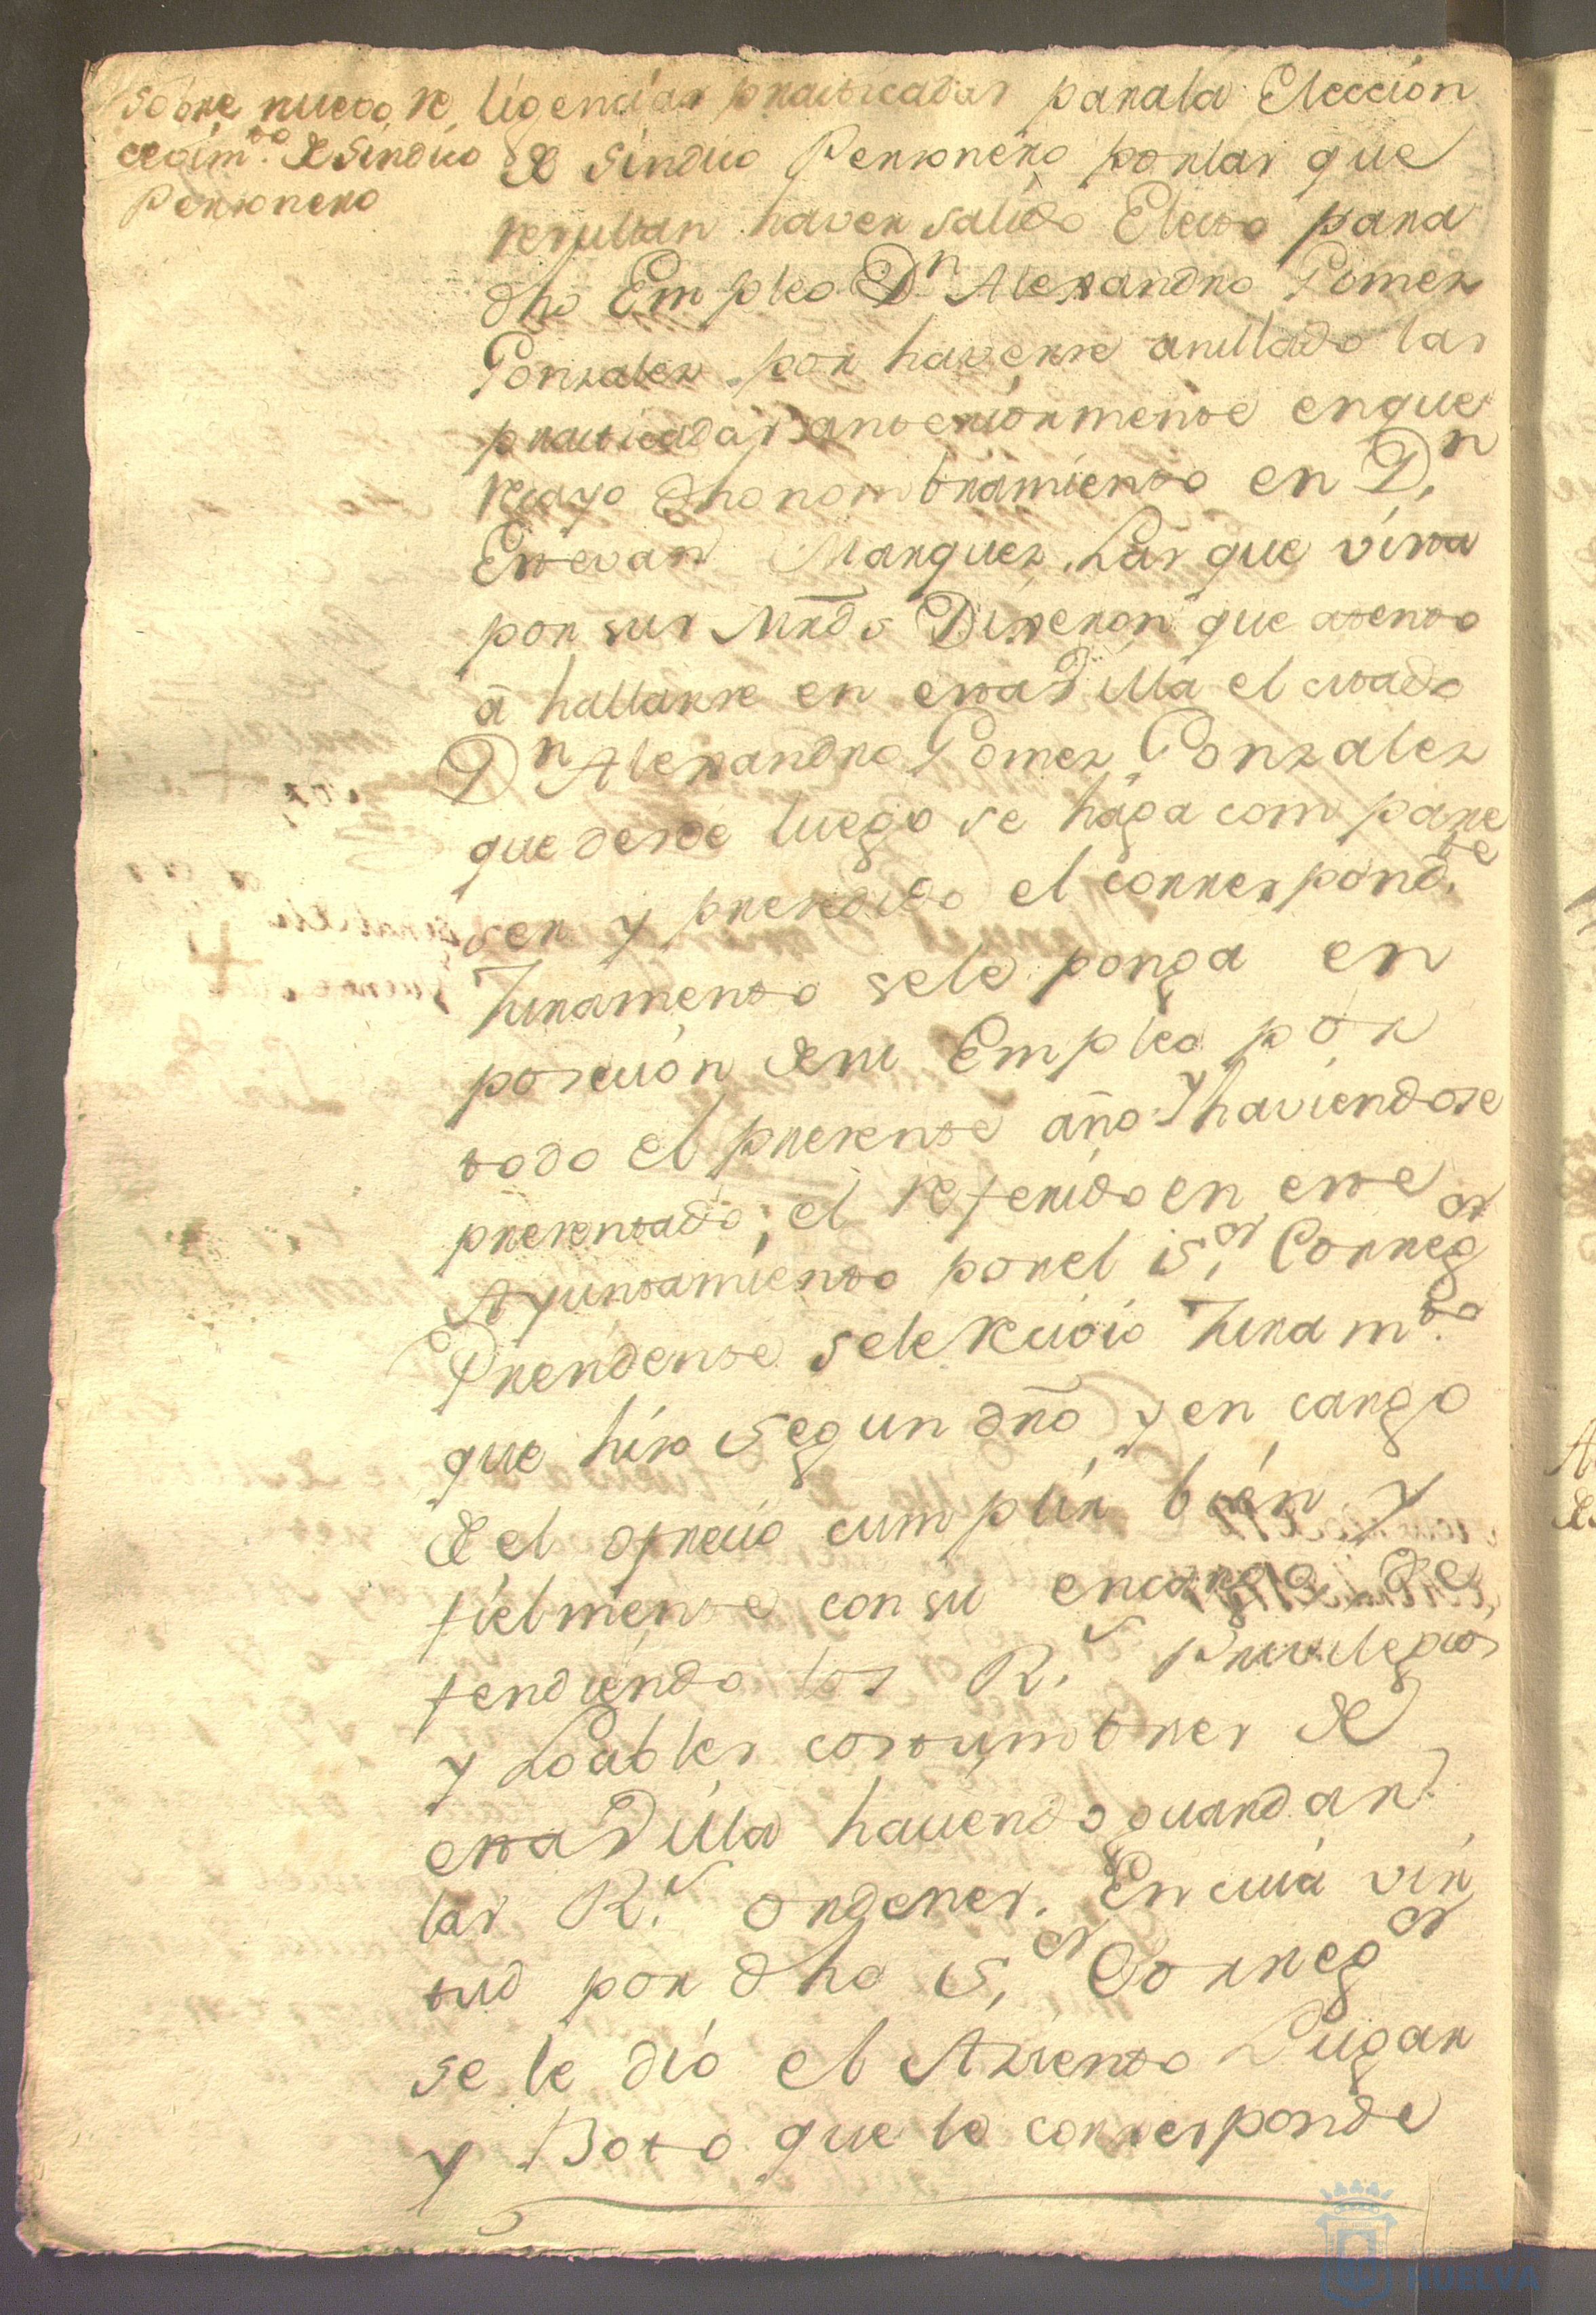 Sobre nuevo re
cevim.to de Sindico
Personero
ligencias practicadas para la Eleccion
de Sindico Personero por las que
resultan haver salido Electo para
dho Empleo Dn Alexandro Gomez
Gonzalez por haverse anullado las
practicadas anteriormente en que
recayo dho nombramiento en Dn
Estevan Marquez. Las que vista
por sus Mrds Dixeron que atento
a hallarse en esta Villa el citado
Dn Alexandro Gomez Gonzalez
que desde luego se haga compare
ser y presedido el correspond.te
Juramento se le ponga en
posecion de su Empleo por
todo el presente año. Y haviendose
presentado el referido en este
Ayuntamiento por el S.or Correg.or
Precidente se le recivio Juram.to
que hizo segun dro y en cargo
de el ofrecio cumplir bien y
fielmente con su encargo de
fendiendo los R.s Privilegios
y Loables costumbres de
esta Villa haciendo guardar
las R.s ordenes. En cuia vir
tud por dho S.or Correg.or
se le dio el Aziento Lugar
y Boto que le corresponde
HUELVA